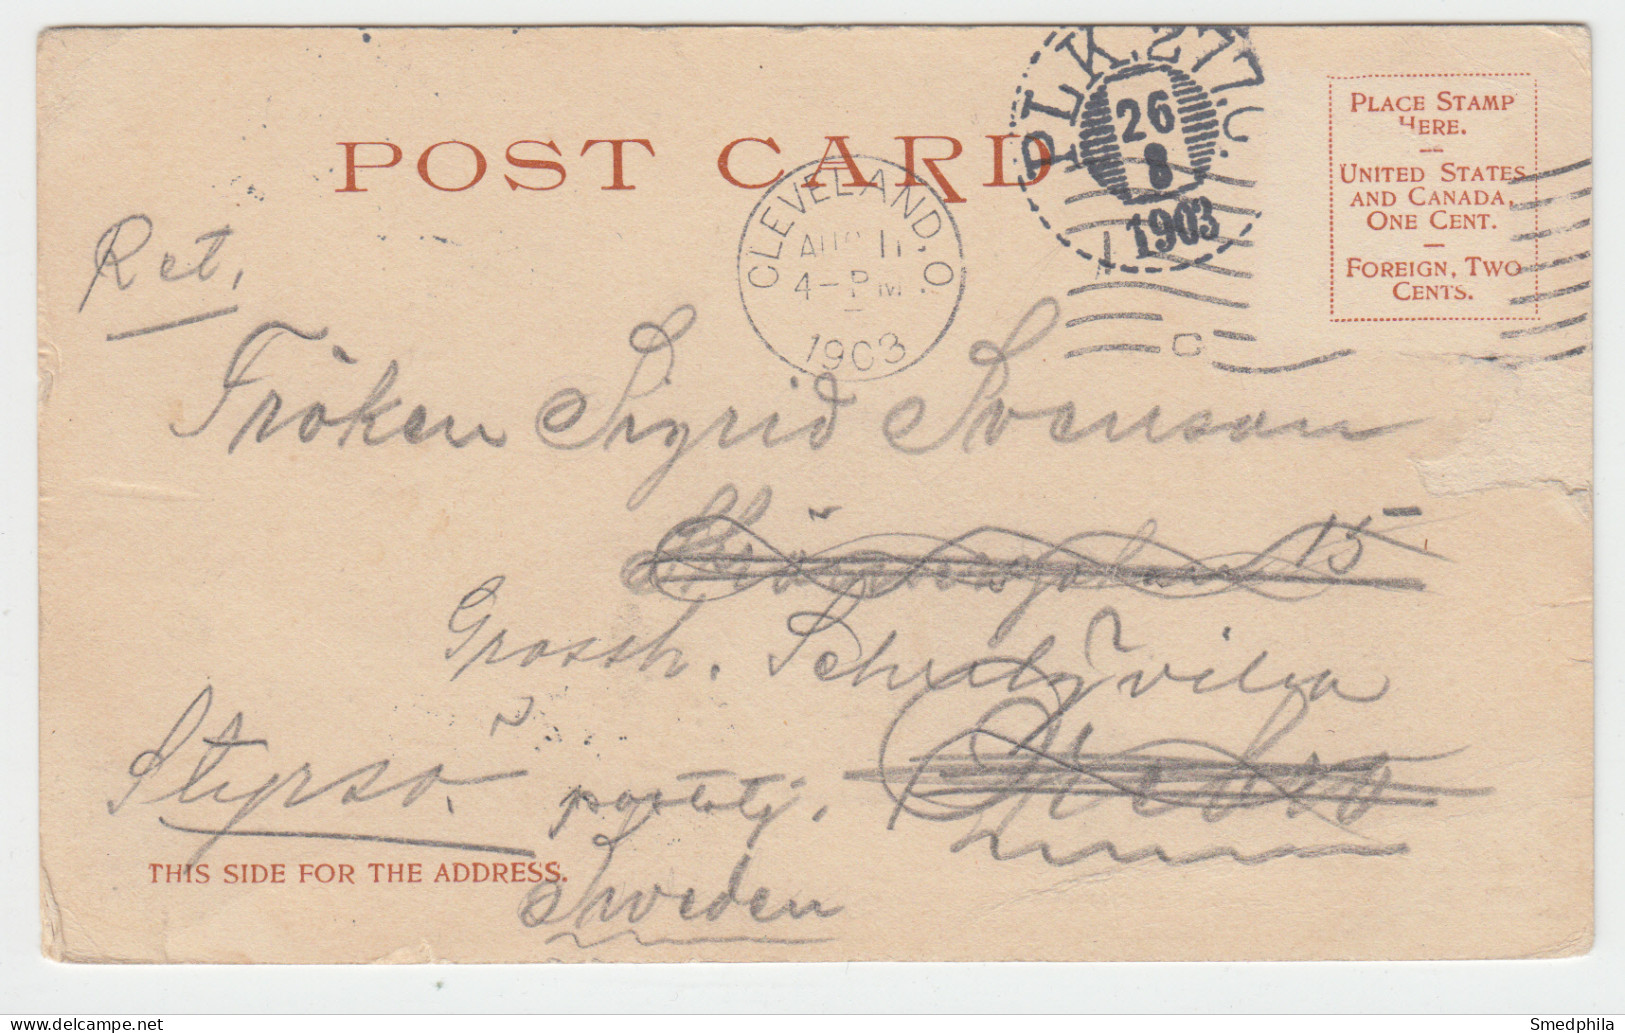 POST CARD
PLK. 277.C.
26
8
1903
CLEVELAND, O.
AUG 11
4-PM
1903
PLACE STAMP
HERE.
UNITED STATES
AND CANADA,
ONE CENT.
FOREIGN, TWO
CENTS.
Ret.
Fröken Sigrid Svenson
15
Grossh. villa
Styrsö postctj.
Sweden
THIS SIDE FOR THE ADDRESS.
Smedphila